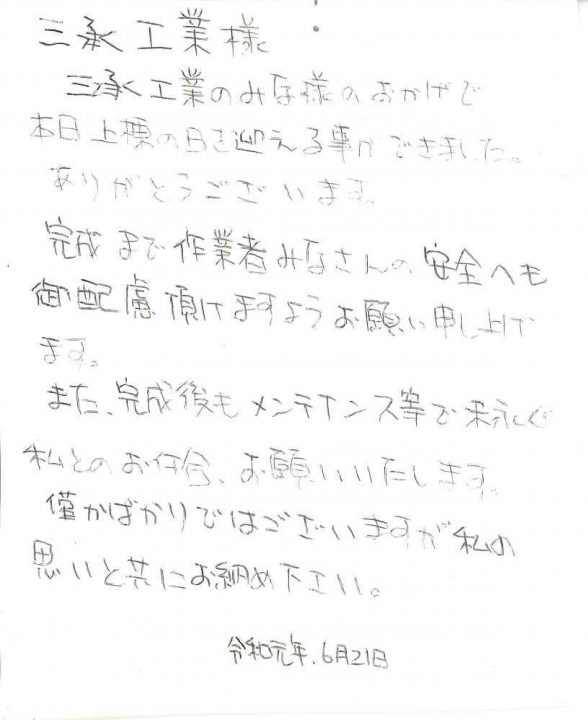 三承工業様
三承工業のみな様のおかげで
本日上棟の日を迎える事ができました。
ありがとうございます。
完成まで作業者みなさんの安全へも
御配慮頂けますようお願い申し上げ
ます。
また、完成後もメンテナンス等で末永く
私とのお付合、お願いいたします。
僅かばかりではございますが私の
思いと共にお納め下さい。
令和元年.6月21日